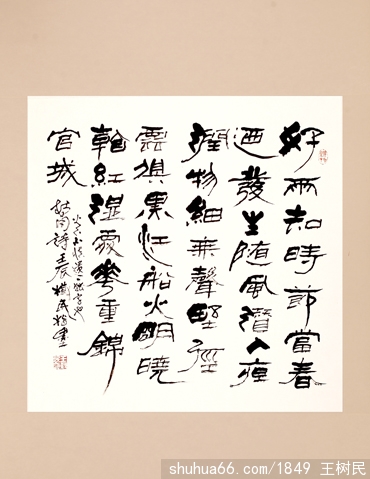 好雨知時節當春
迺發生随風潛入夜
潤物細無聲野徑
雲俱黑江船火明曉
看紅濕處花重錦
官城
杜甫詩壬辰樹民
shuhua66.com/1849 王树民